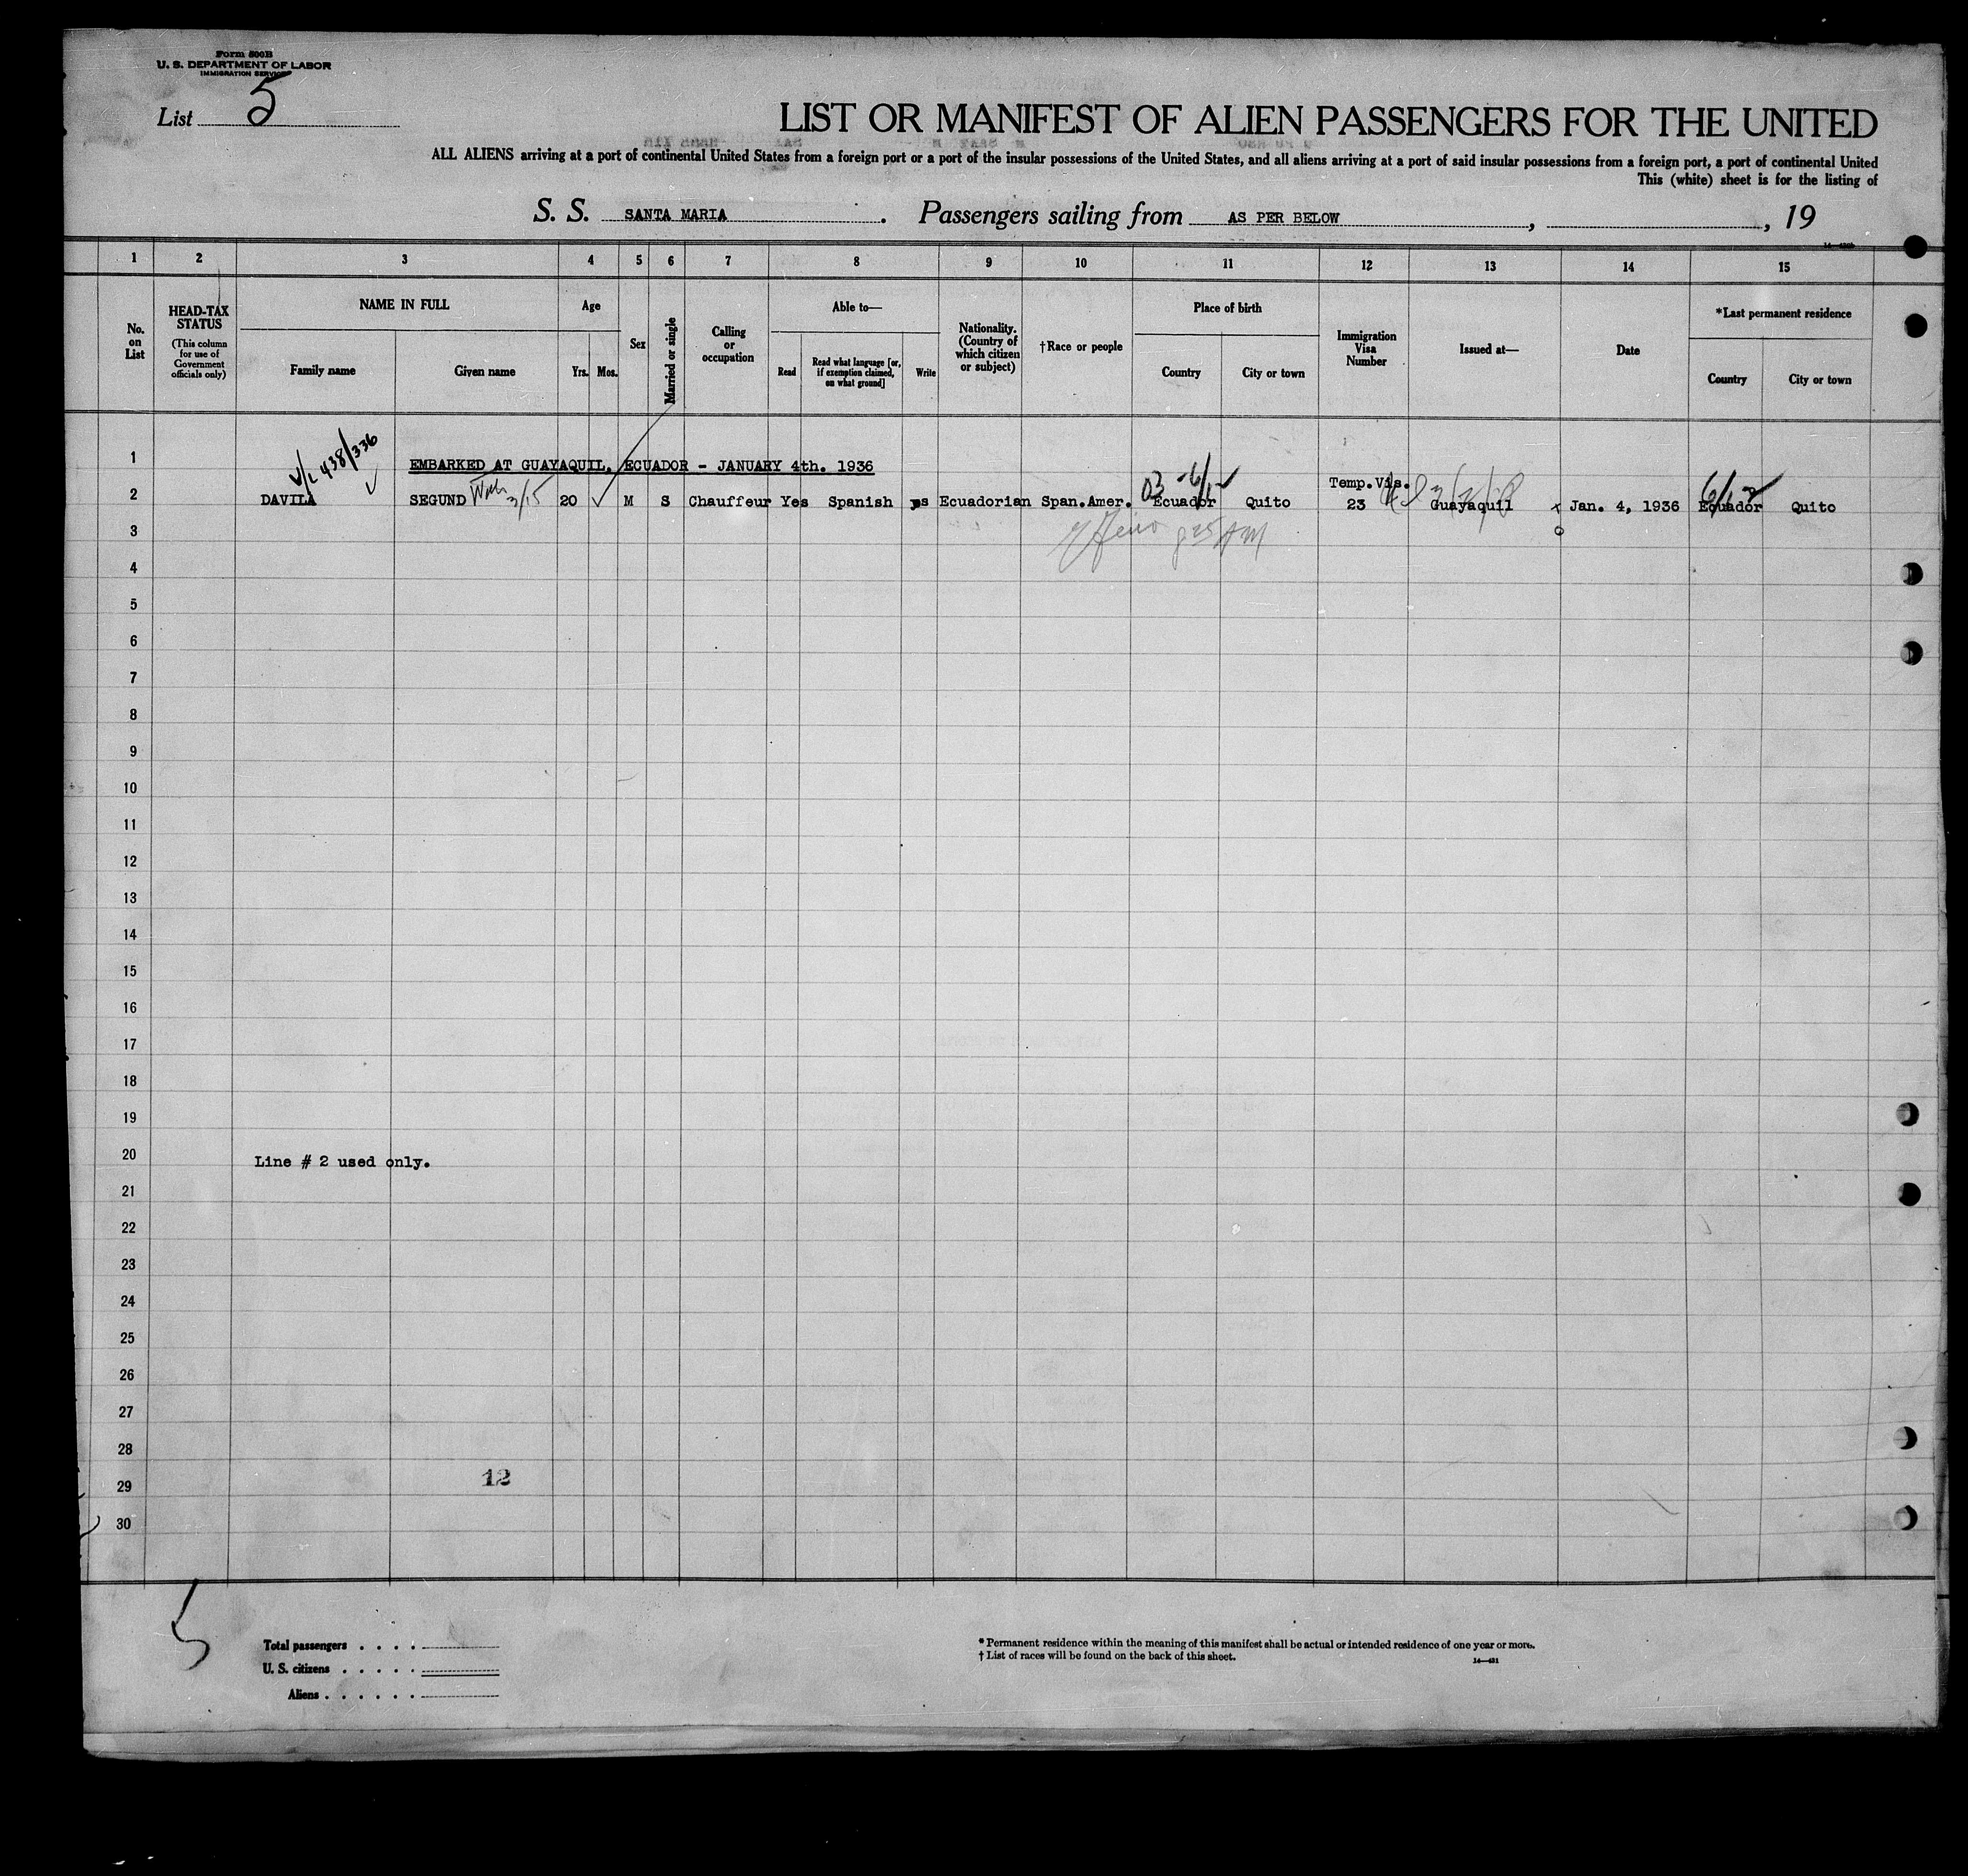 Form 500B
U. S. DEPARTMENT OF LABOR
IMMIGRATION SERVICE
List 5
LIST OR MANIFEST OF ALIEN PASSENGERS FOR THE UNITED
ALL ALIENS arriving at a port of continental United States from a foreign port or a port of the insular possessions of the United States, and all aliens arriving at a port of said insular possessions from a foreign port, a port of continental United
This (white) sheet is for the listing of
S. S. SANTA MARIA. Passengers sailing from AS PER BELOW, , 19
1 2 3 4 5 6 7 8 9 10 11 12 13 14 15
No. on List
HEAD-TAX STATUS
(This column for use of Government officials only)
NAME IN FULL
Family name
Given name
Age
Yrs. Mos.
Sex
Married or single
Calling or occupation
Able to—
Read
Read what language [or, if exemption claimed, on what ground]
Write
Nationality. (Country of which citizen or subject)
†Race or people
Place of birth
Country
City or town
Immigration Visa Number
Issued at—
Date
*Last permanent residence
Country
City or town
V/L 438/336
1 EMBARKED AT GUAYAQUIL, ECUADOR - JANUARY 4th. 1936
03 -6/1
Temp.Vis.
2 DAVILA SEGUND 20 M S Chauffeur Yes Spanish yes Ecuadorian Span.Amer. Ecuador Quito 23 Guayaquil Jan. 4, 1936 Ecuador Quito
3
4
5
6
7
8
9
10
11
12
13
14
15
16
17
18
19
20 Line # 2 used only.
21
22
23
24
25
26
27
28
12
29
30
5
Total passengers . . . .
U. S. citizens . . . . .
Aliens . . . . . .
* Permanent residence within the meaning of this manifest shall be actual or intended residence of one year or more.
† List of races will be found on the back of this sheet.
14—431